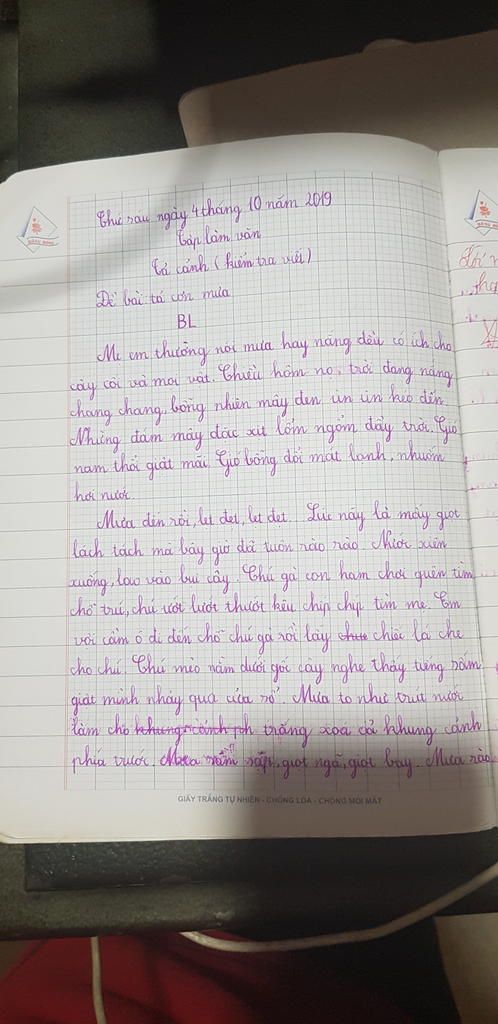 Thứ sau ngày 4 tháng 10 năm 2019
Tập làm văn
Tả cảnh (kiểm tra viết)
Đề bài tả cơn mưa
BL
Mẹ em thường nói mưa hay nắng đều có ích cho
cây cối và mọi vật. Chiều hôm nọ, trời đang nắng
chang chang, bỗng nhiên mây đen ùn ùn kéo đến.
Những đám mây đặc xịt lổm ngổm đầy trời. Gió
nam thổi giật mãi. Gió bỗng đổi mát lạnh, nhuốm
hơi nước.
Mưa đến rồi, lẹt đẹt, lẹt đẹt. Lúc nãy là mấy giọt
lách tách mà bây giờ đã tuôn rào rào. Nước xiên
xuống, lao vào bụi cây. Chú gà con ham chơi quên tìm
chỗ trú, chú ướt lướt thướt kêu chip chip tìm mẹ. Em
vội cầm ô đi đến chỗ chú gà rồi lấy chiếc lá che
cho chú. Chú mèo nằm dưới gốc cây nghe thấy tiếng sấm
giật mình nhảy qua cửa sổ. Mưa to như trút nước
làm cho trắng xoá cả khung cảnh
phía trước. giọt ngã, giọt bay. Mưa rào
GIẤY TRẮNG TỰ NHIÊN - CHỐNG LÓA - CHỐNG MỎI MẮT